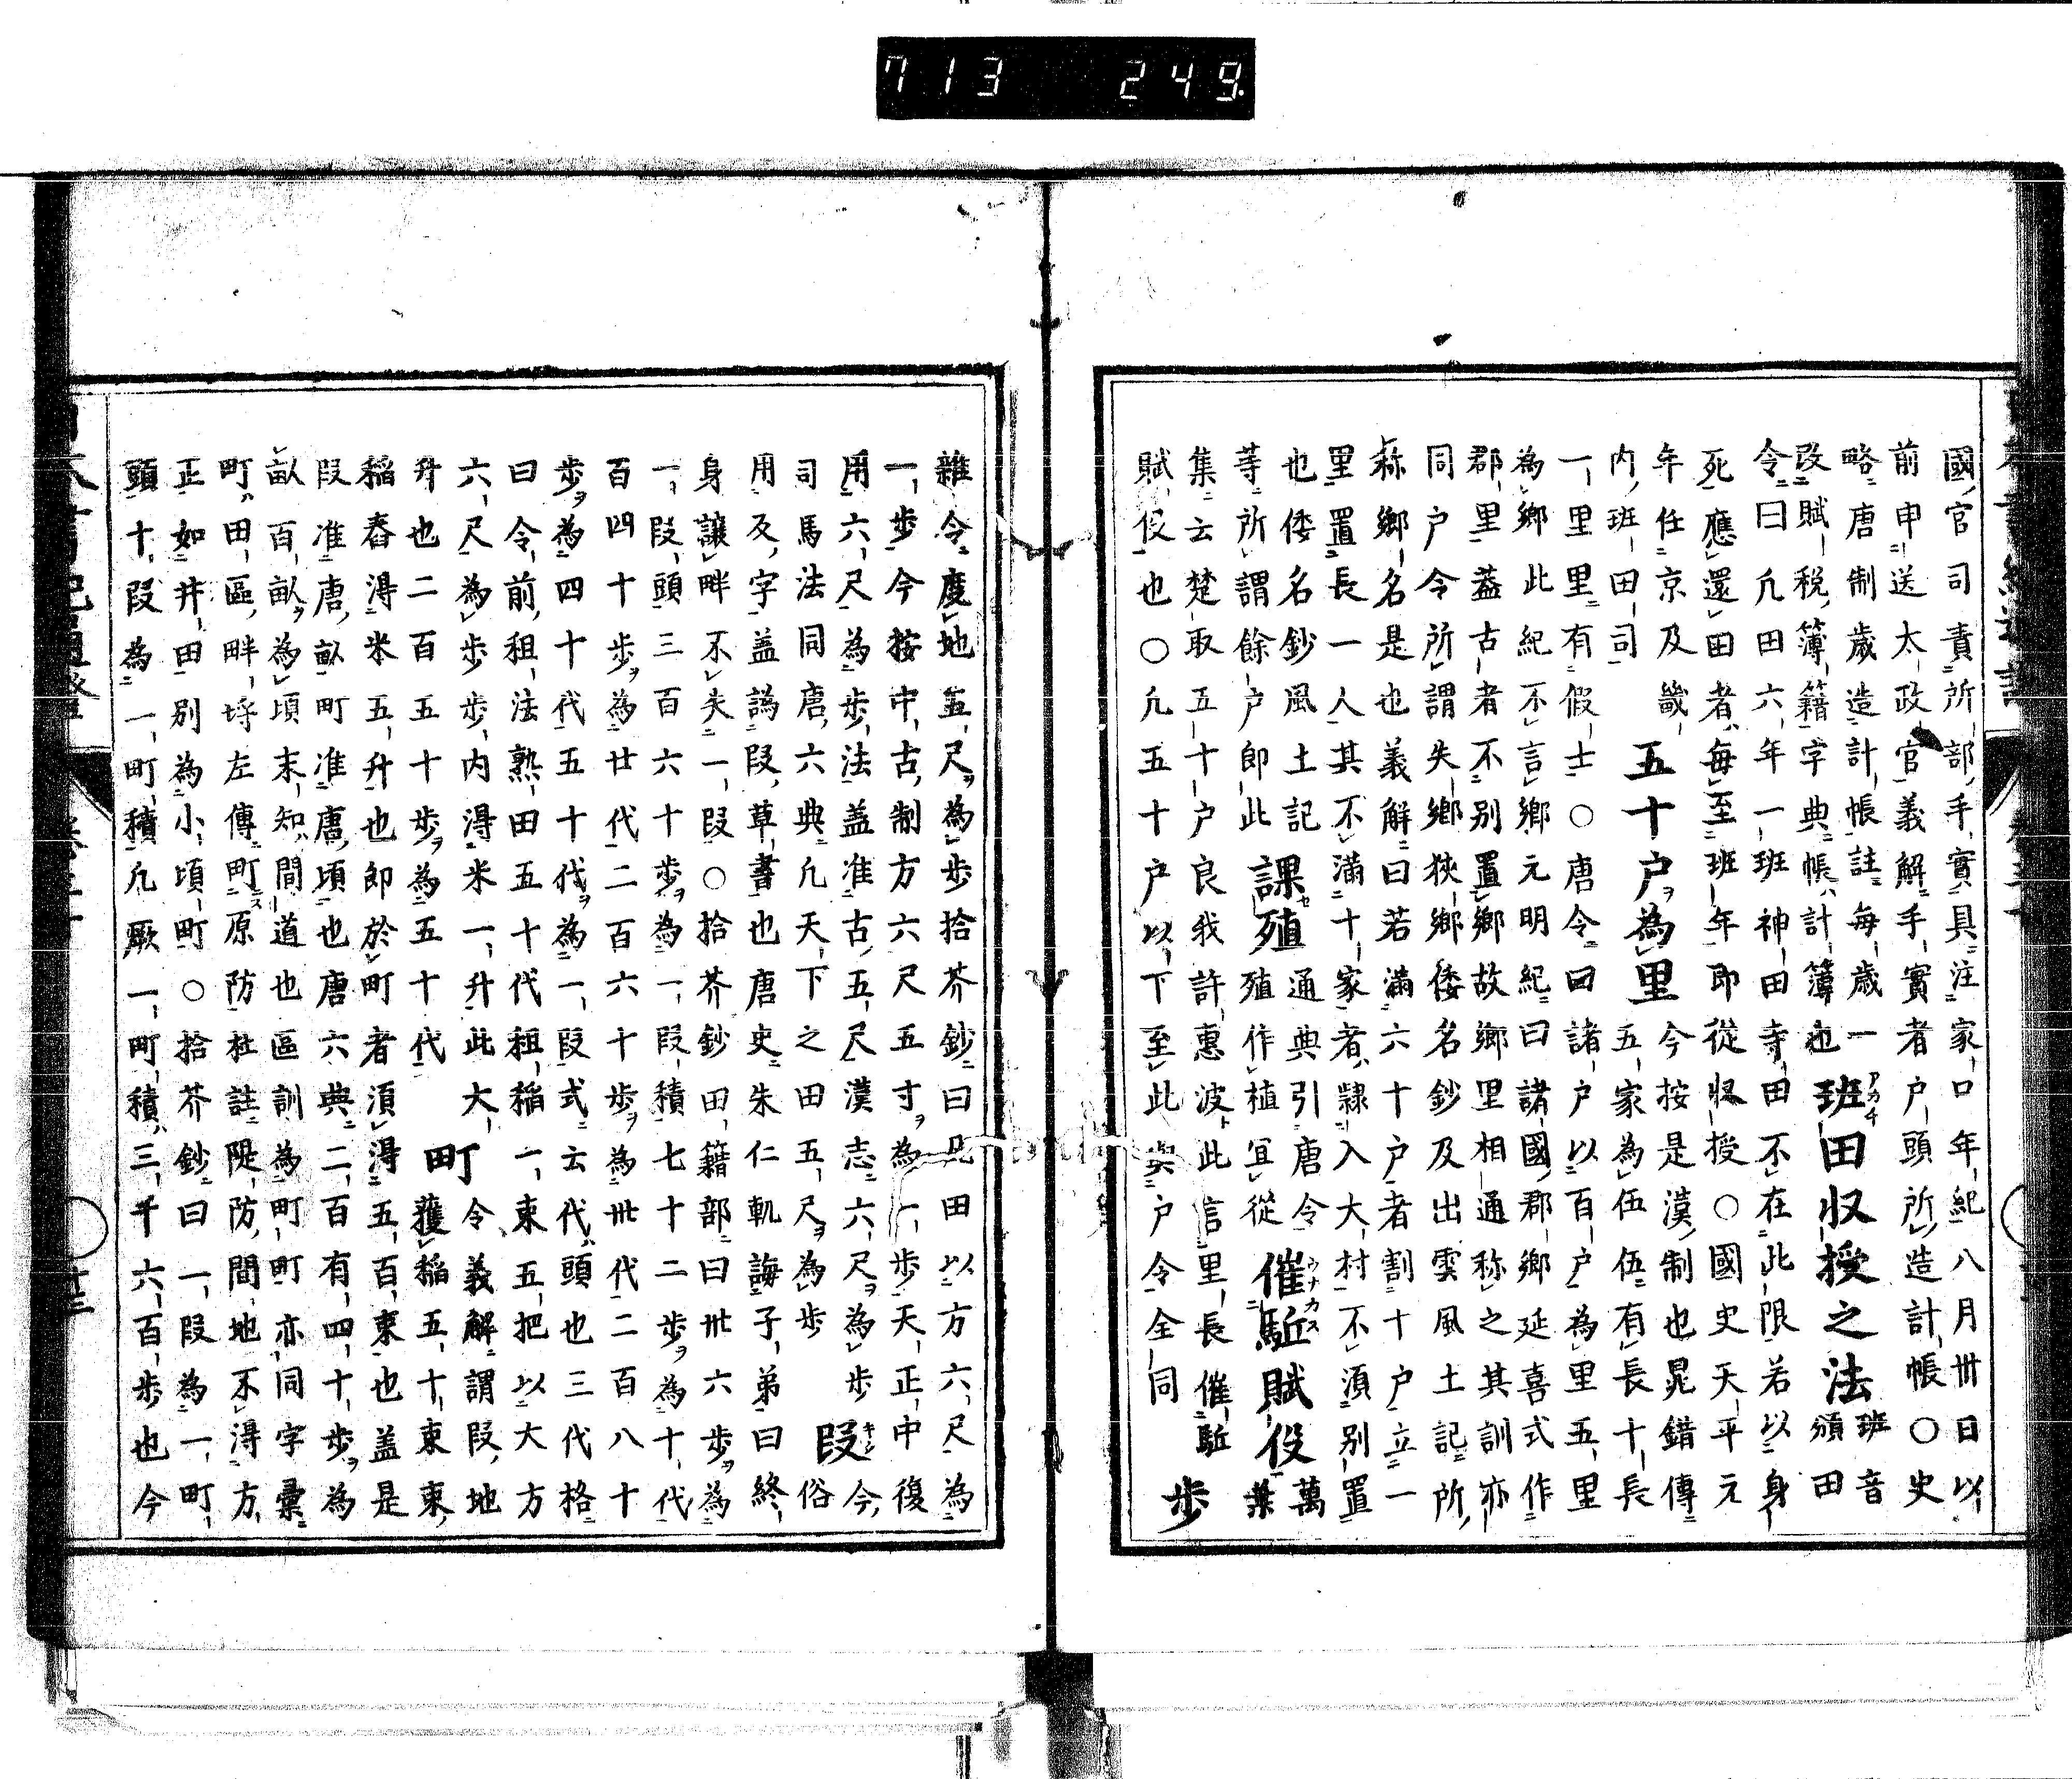 713 249
國官司責所部手實具注家口年紀八月卅日以
前申送太政官義解手實者戸頭所造計帳〇史
略唐制歳造計帳註毎歳一班田収授之法班音頒田
改賦税簿籍字典帳計簿也
令曰凡田六年一班神田寺田不在此限若以身
死應還田者毎至班年即從収授〇國史天平元
年任京及畿今按是漢制也晁錯傳
内班田司五十戸為里五家為伍伍有長十長
一里里有假士〇唐令曰諸戸以百戸為里五里
為鄉此紀不言鄉元明紀曰諸國郡鄉延喜式作
郡里蓋古者不別置鄉故鄉里相通称之其訓亦
同戸令所謂失鄉狹鄉倭名鈔及出雲風土記所
称鄉名是也義解曰若滿六十戸者割十戸立一
里置長一人其不滿十家者隷入大村不湏別置
也倭名鈔風土記課殖通典引唐令催駈賦役萬葉
等所謂餘戸即此殖作植宜從
集云楚取五十戸良我許惠波此信里長催駈歩
賦役也〇凡五十戸以下至此與戸令全同
雜令度地五尺為歩拾芥鈔曰凡田以方六尺為
一歩今按中古制方六尺五寸為一歩天正中復
用六尺為歩法盖准古五尺漢志六尺為歩段今俗
司馬法同唐六典凡天下之田五尺為歩
用反字盖譌段草書也唐史朱仁軌誨子弟曰終
身讓畔不失一段〇拾芥鈔田籍部曰卅六歩為
一段頭三百六十歩為一段積七十二歩為十代
百四十歩為廿代二百六十歩為卅代二百八十
歩為四十代五十代為一段式云代頭也三代格
曰令前租法熟田五十代租稲一束五把以大方
六尺為歩歩内得米一升此大町令義解謂段地
升也二百五十歩為五十代獲稲五十束束
稲舂得米五升也即於町者湏得五百束也盖是
段准唐畝町准唐頃也唐六典二百有四十歩為
畝百畝為頃末知間道也區訓為町町亦同字彙
町田區畔埒左傳町原防杜註隄防間地不得方
正如井田別為小頃町〇拾芥鈔曰一段為一町
頭十段為一町積凡厥一町積三千六百歩也今